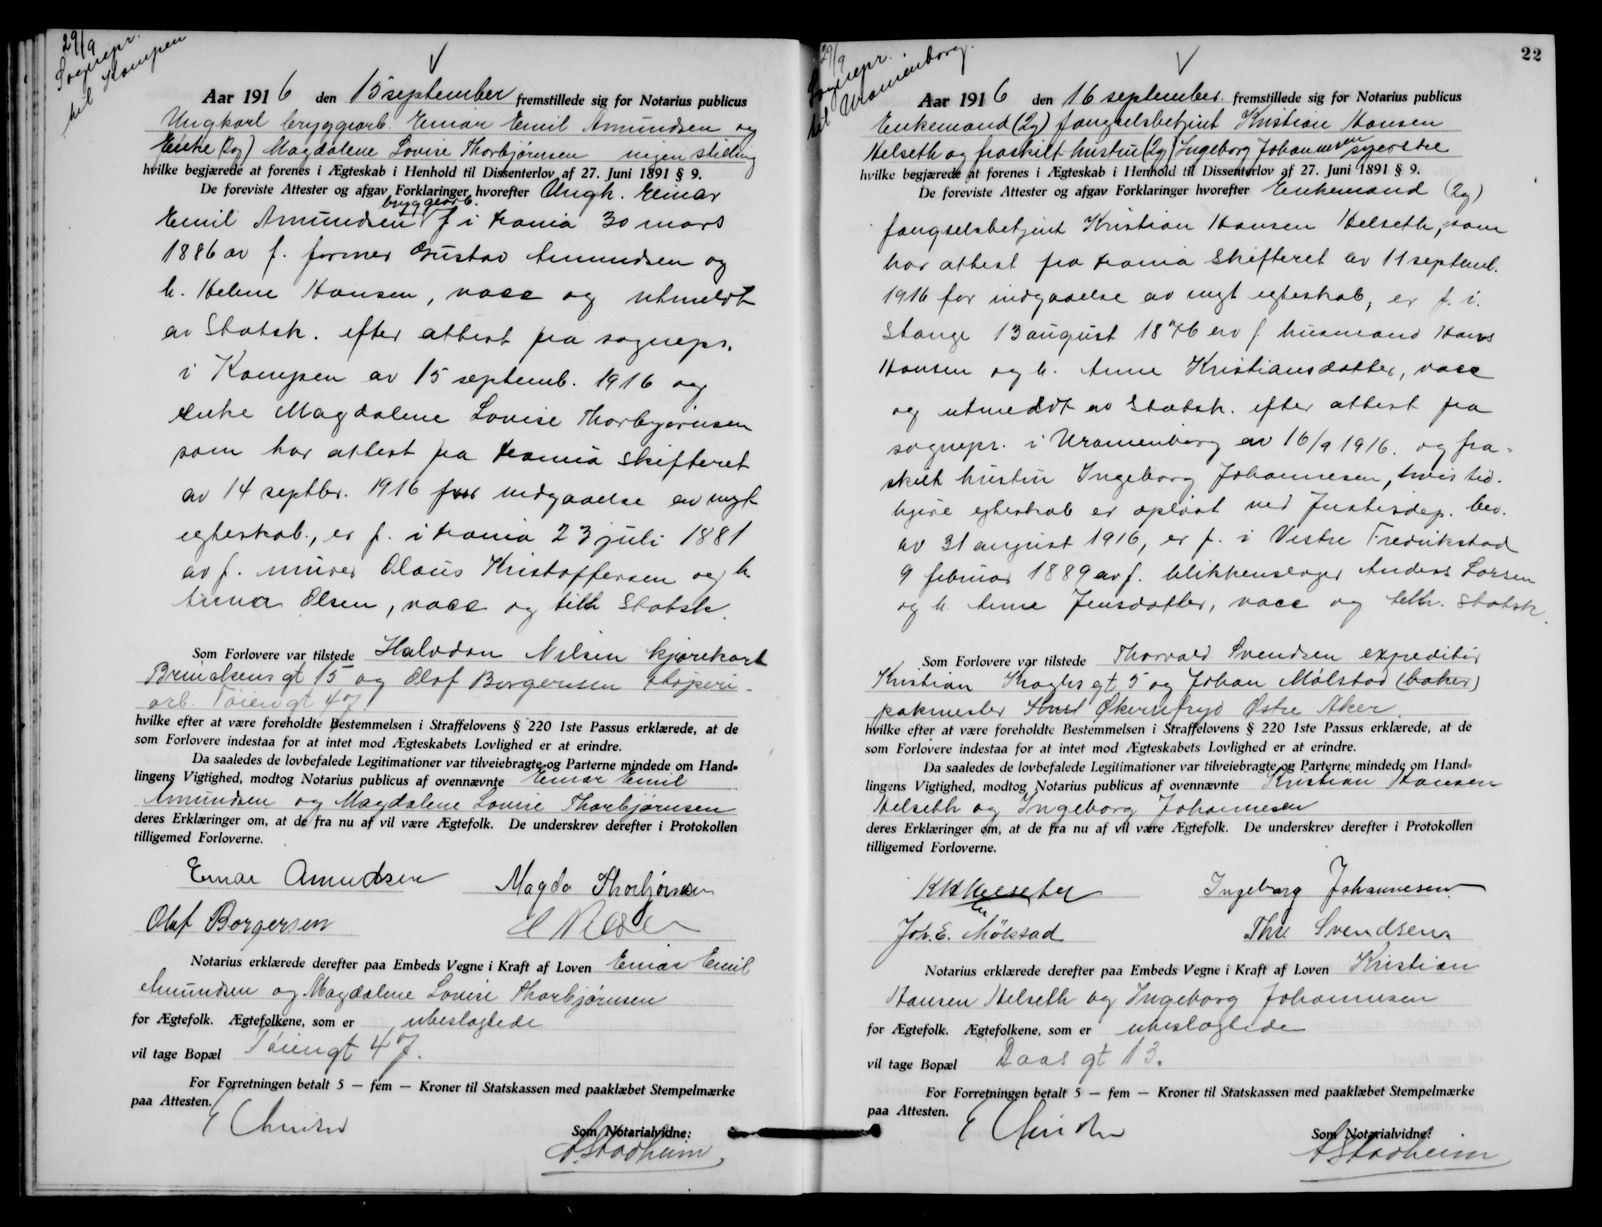 29/9
Sognepr.
til Kampen
Aar 1916 den 15 september fremstillede sig for Notarius publicus
Ungkarl bryggearb. Einar Emil Amundsen og
Enke (2g) Magdalene Lovise Thorbjørnsen ingen stilling
hvilke begjærede at forenes i Ægteskab i Henhold til Dissenterlov af 27. Juni 1891 § 9.
De foreviste Attester og afgav Forklaringer hvorefter Ungk. Einar
bryggearb.
Emil Amundsen f i Krania 30 mars
1886 av f. former Gustav Amundsen og
h. Helene Hansen, vacc og utmeldt
av Statsk. efter attest fra sognepr.
i Kampen av 15 septemb. 1916 og
enke Magdalene Lovise Thorbjørnsen
som har attest fra Krania Skifteret
av 14 septbr. 1916 for indgaaelse av nyt
egteskab., er f. i Krania 23 juli 1881
av f. murer Olaus Kristoffersen og h
Anna Olsen, vacc og tilh Statsk.
Som Forlovere var tilstede Halvdan Nilsen kjørekarl
gt 15 og Olaf Borgersen støperi-
arb. Tøiengt 47
hvilke efter at være foreholdte Bestemmelsen i Straffelovens § 220 1ste Passus erklærede, at de
som Forlovere indestaa for at intet mod Ægteskabets Lovlighed er at erindre.
Da saaledes de lovbefalede Legitimationer var tilveiebragte og Parterne mindede om Hand-
lingens Vigtighed, modtog Notarius publicus af ovennævnte Einar Emil
Amundsen og Magdalene Lovise Thorbjørnsen
deres Erklæringer om, at de fra nu af vil være Ægtefolk. De underskrev derefter i Protokollen
tilligemed Forloverne.
Einar Amundsen Magda Thorbjørnsen
Olaf Borgersen H Nilsen
Notarius erklærede derefter paa Embeds Vegne i Kraft af Loven Einar Emil
Amundsen og Magdalene Lovise Thorbjørnsen
for Ægtefolk. Ægtefolkene, som er ubeslægtede
vil tage Bopæl Tøiengt 47.
For Forretningen betalt 5 — fem — Kroner til Statskassen med paaklæbet Stempelmærke
paa Attesten.
Som Notarialvidne:
A Stadheim
22
29/9
Sognepr.
til Uranienborg.
Aar 1916 den 16 september fremstillede sig for Notarius publicus
Enkemand (2g) fængselsbetjent Kristian Hansen
Helseth og fraskilt hustru (2g) Ingeborg Johannesen syerske
hvilke begjærede at forenes i Ægteskab i Henhold til Dissenterlov af 27. Juni 1891 § 9.
De foreviste Attester og afgav Forklaringer hvorefter Enkemand (2g)
fængselsbetjent Kristian Hansen Helseth, som
har attest fra Krania Skifteret av 11 septemb.
1916 for indgaaelse av nyt egteskab, er f. i.
Stange 13 august 1876 av f husmand Hans
Hansen og h. Anne Kristiansdatter, vacc
og utmeldt av Statsk. efter attest fra
sognepr. i Uranienborg av 16/9 1916. og fra-
skilt hustru Ingeborg Johannesen, hvis tid-
ligere egteskab er opløst ved Justisdep. bev.
av 31 august 1916, er f. i Vestre Fredrikstad
9 februar 1889 av f. blikkenslager Anders Larsen
og h. Anne Jensdatter, vacc og tilh. Statsk.
Som Forlovere var tilstede Thorvald Svendsen expeditør
Kristian Kroghs gt 5 og Johan Mølstad (baker)
pakmester Økernfryd Østre Aker
hvilke efter at være foreholdte Bestemmelsen i Straffelovens § 220 1ste Passus erklærede, at de
som Forlovere indestaa for at intet mod Ægteskabets Lovlighed er at erindre.
Da saaledes de lovbefalede Legitimationer var tilveiebragte og Parterne mindede om Hand-
lingens Vigtighed, modtog Notarius publicus af ovennævnte Kristian Hansen
Helseth og Ingeborg Johannesen
deres Erklæringer om, at de fra nu af vil være Ægtefolk. De underskrev derefter i Protokollen
tilligemed Forloverne.
Ingeborg Johannesen
Joh. E. Mølstad Thv. Svendsen
Notarius erklærede derefter paa Embeds Vegne i Kraft af Loven Kristian
Hansen Helseth og Ingeborg Johannesen
for Ægtefolk. Ægtefolkene, som er ubeslægtede
vil tage Bopæl Daas gt 13.
For Forretningen betalt 5 — fem — Kroner til Statskassen med paaklæbet Stempelmærke
paa Attesten.
Som Notarialvidne:
A Stadheim